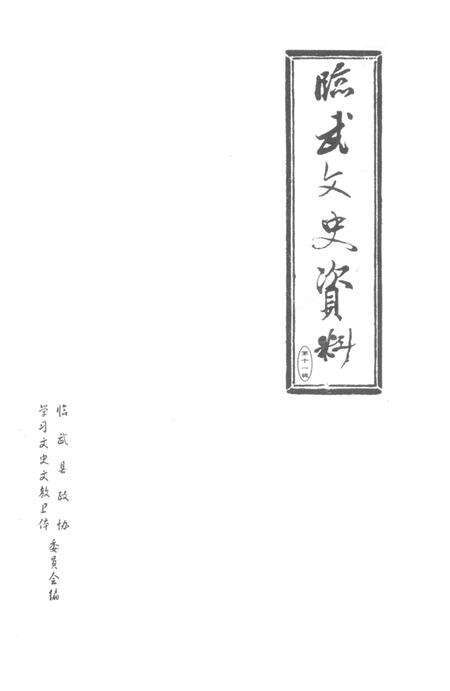 臨武文史資料
第十一辑
临武县政协
学习文史文教卫体
委员会编